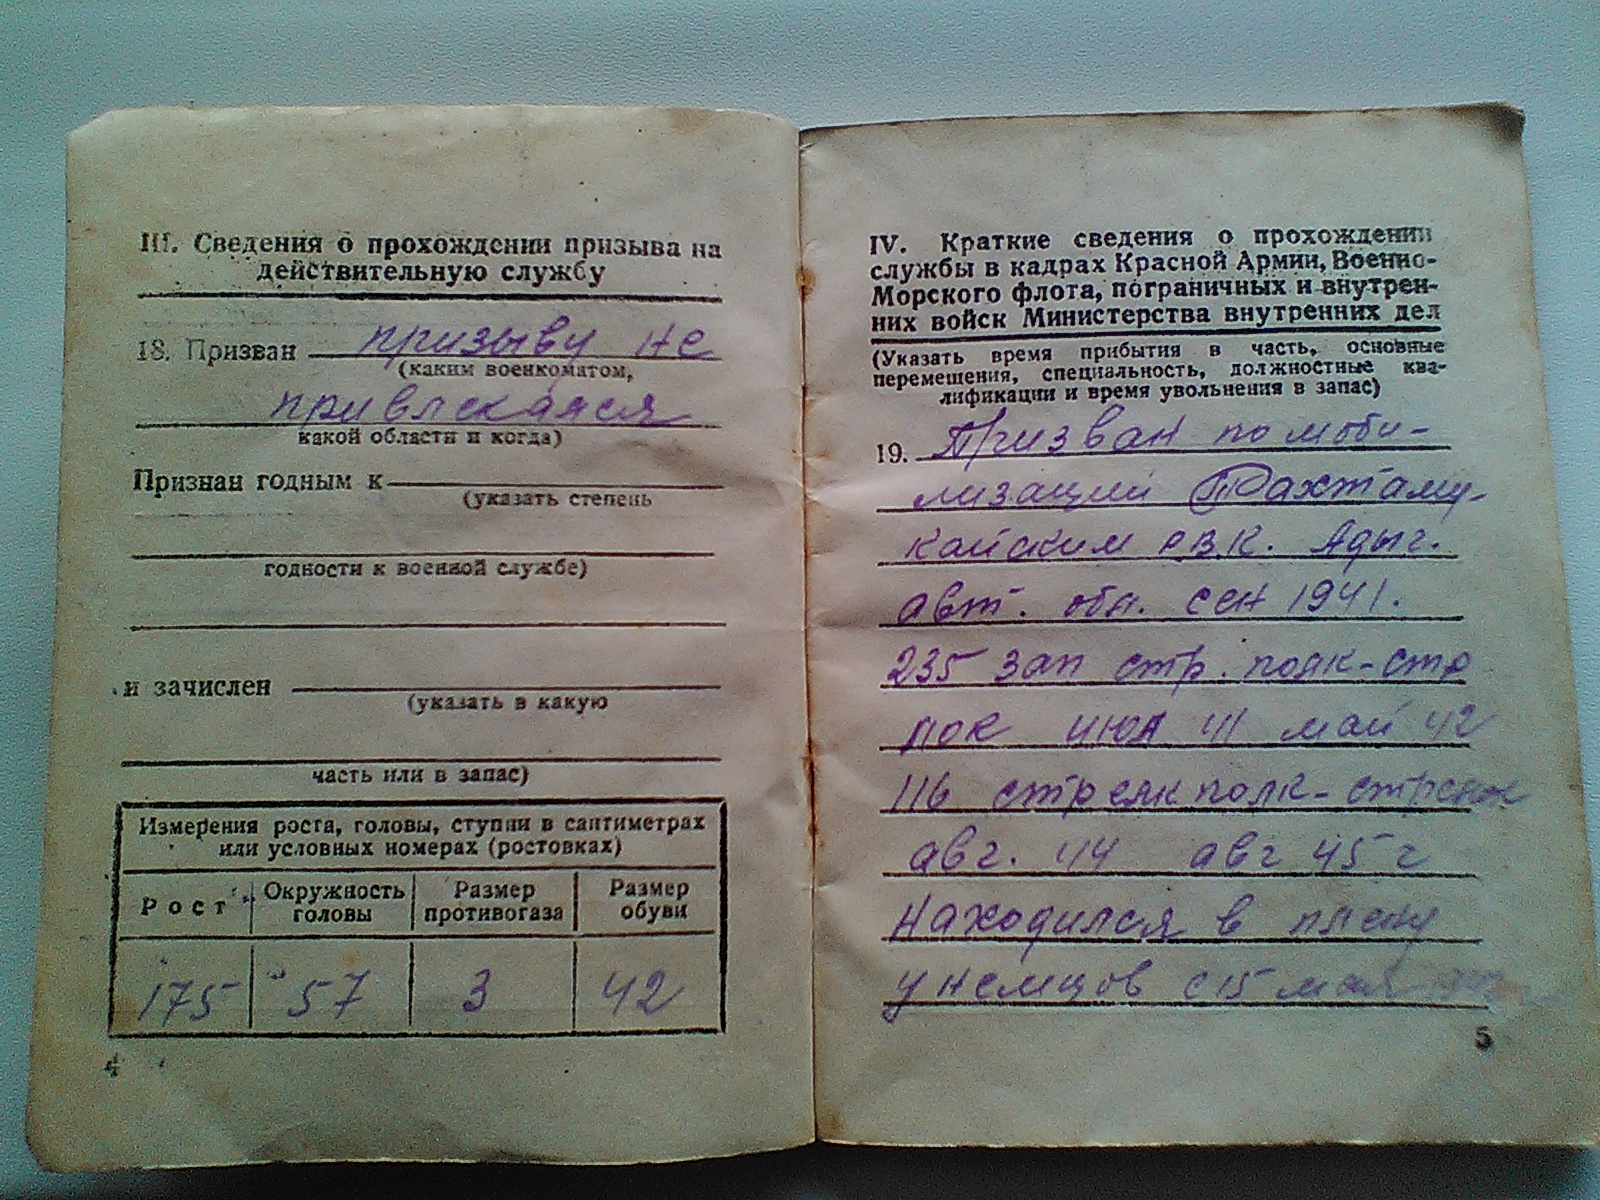 III. Сведения о прохождении призыва на
действительную службу
18. Призван призыву не
(каким военкоматом,
привлекался
какой области и когда)
Признан годным к
(указать степень
годности к военной службе)
и зачислен
(указать в какую
часть или в запас)
Измерения роста, головы, ступни в сантиметрах
или условных номерах (ростовках)
Рост
Окружность
головы
Размер
противогаза
Размер
обуви
175 57 3 42
4
IV. Краткие сведения о прохождении
службы в кадрах Красной Армии, Военно-
Морского флота, пограничных и внутрен-
них войск Министерства внутренних дел
(Указать время прибытия в часть, основные
перемещения, специальность, должностные ква-
лификации и время увольнения в запас)
19. Призван по моби-
лизации Тахтаму-
кайским Р.В.К. Адыг.
авт. обл. сен 1941.
235 зап стр. полк-стр
лок июл 41 май 42
116 стрелк полк-стрелок
авг. 44 авг 45 г
Находился в плену
у немцов с 15 мая
5